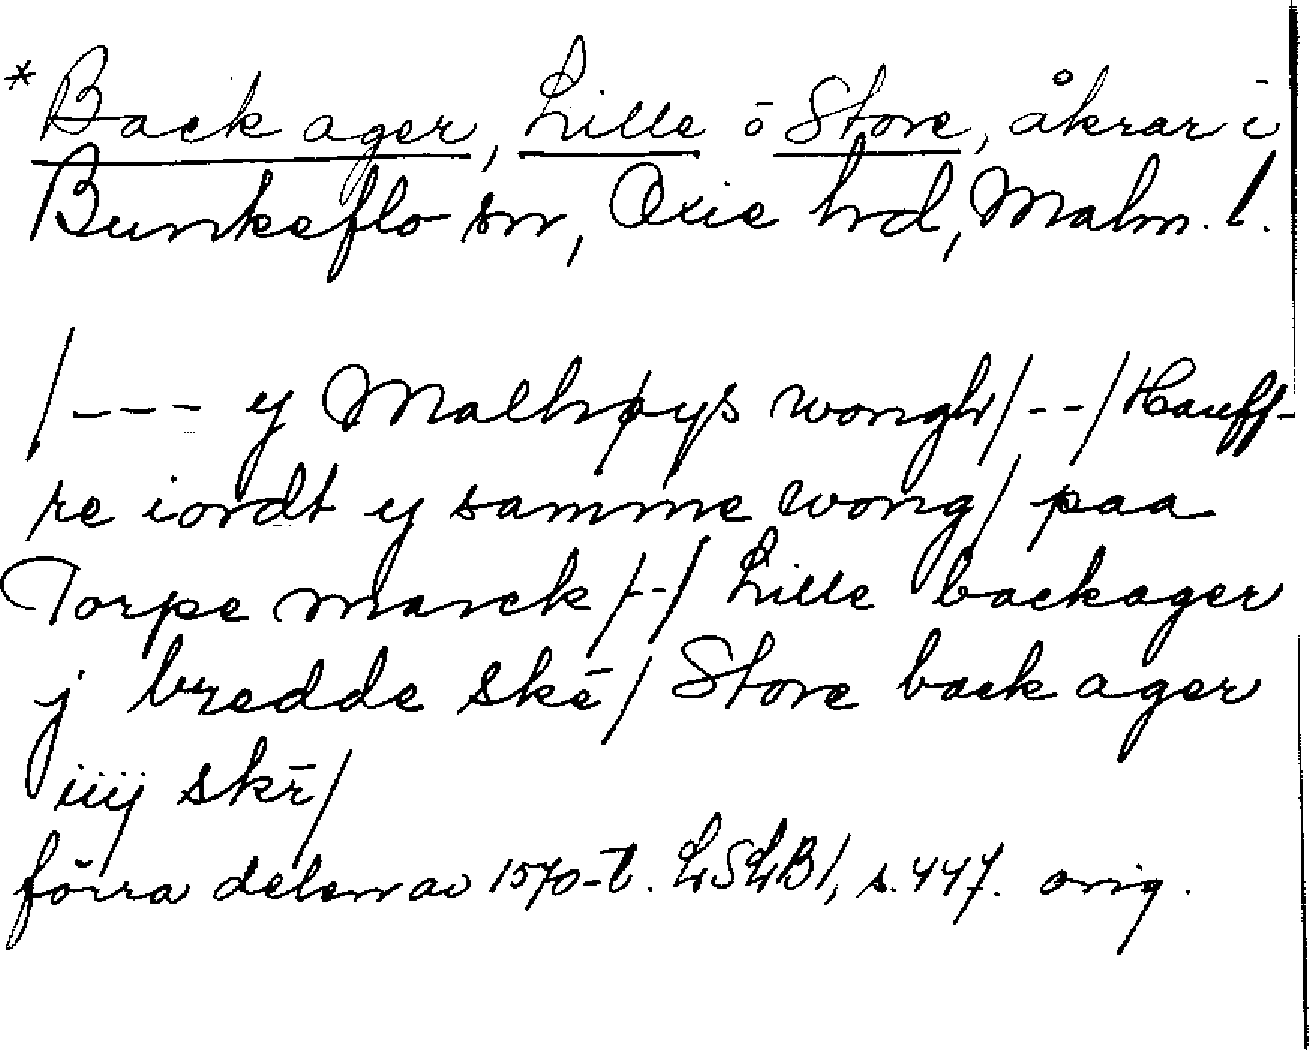 *Back ager, Lille o Store, åkrar i
Bunkeflo sn, Oxie hd, Malm. l.
/--- y Malhøys wongh/--/Hauff-
re iordt y samme wong/ paa
Torpe marck/--/ Lille backager
j bredde skē/ Store back ager
iiij skē/
förra delen av 1570-t. LSLB1, s. 447. orig.